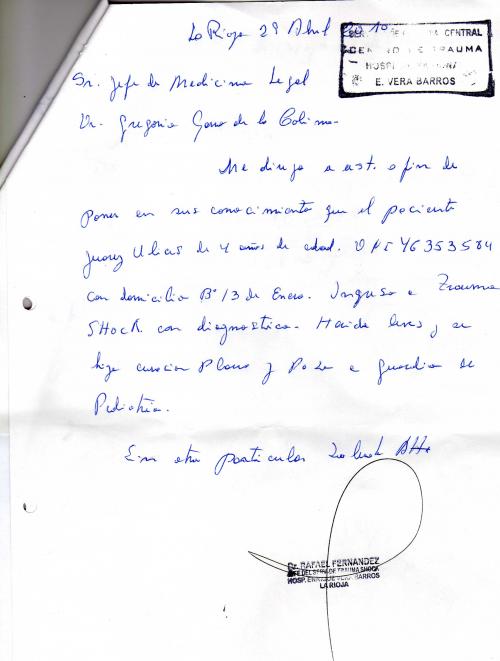 La Rioja 29 Abril 2010
CENTRAL
CENTRO DE TRAUMA
HOSP.
E. VERA BARROS
Sr. Jefe de Medicina Legal
Dr. Gregorio de la Colina
Me dirijo a ust. a fin de
poner en sus conocimiento que el paciente
Juarez de 4 años de edad. DNI 46353584
con domicilio Bº 13 de Enero. Ingreso a Trauma
SHock con diagnostico. Herida leves y se
hizo curacion Plana y Pasa a guardia de
Pediatria.
Sin otro particular Saluda Atte
Dr. RAFAEL FERNANDEZ
JEFE DEL SERV. DE TRAUMA SHOCK
HOSP. ENRIQUE VERA BARROS
LA RIOJA